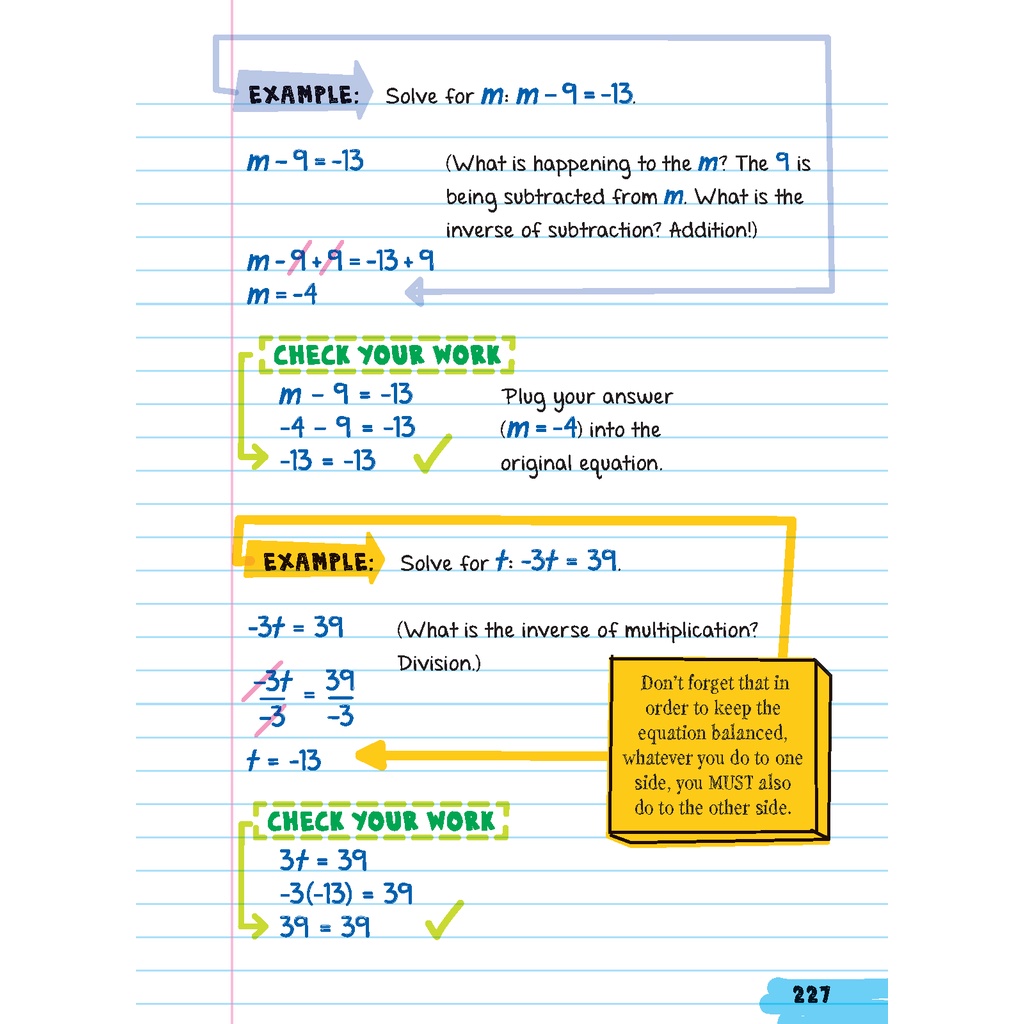 EXAMPLE: Solve for m: m – 9 = -13.
m – 9 = -13
(What is happening to the m? The 9 is
being subtracted from m. What is the
inverse of subtraction? Addition!)
m – 9 + 9 = -13 + 9
m = -4
CHECK YOUR WORK
m – 9 = -13
-4 – 9 = -13
-13 = -13 ✓
Plug your answer
(m = -4) into the
original equation.
EXAMPLE: Solve for t: -3t = 39.
-3t = 39
(What is the inverse of multiplication?
Division.)
-3t/-3 = 39/-3
t = -13
Don't forget that in
order to keep the
equation balanced,
whatever you do to one
side, you MUST also
do to the other side.
CHECK YOUR WORK
3t = 39
-3(-13) = 39
39 = 39 ✓
227